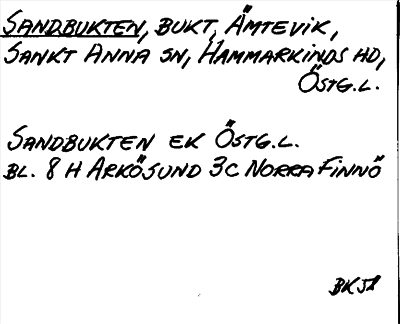 SANDBUKTEN, BUKT, ÄMTEVIK,
SANKT ANNA SN, HAMMARKINDS HD,
ÖSTG.L.
SANDBUKTEN EK ÖSTG.L.
BL. 8 H ARKÖSUND 3C NORRA FINNÖ